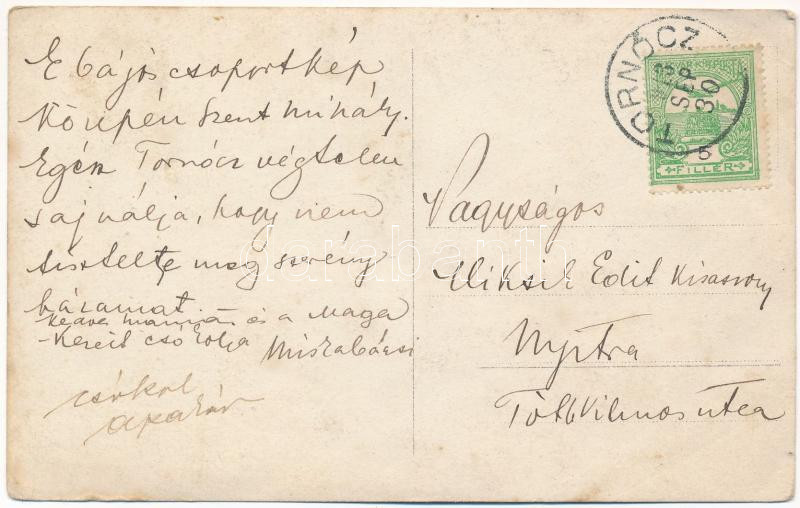 E bájos csoportkép
közepén Szent Mihály.
Egén Tornócz végtelen
sajnálja, hogy nem
tisztelte meg szerény
házamat
kedves mamát és a Maga
kezeit csókolja Miszabácsi
csókol
TORNÓCZ
913 SEP 30
5
MAGYAR KIR. POSTA
FILLÉR
Nagyságos
Miksik Edit kisasszony
Nyitra
Tóth Vilmos utca
darabanth